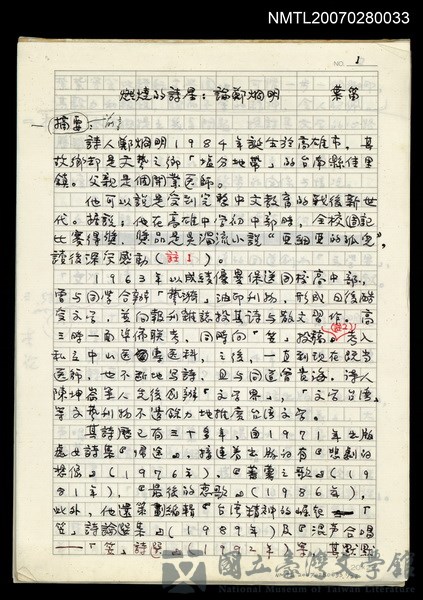 NMTL20070280033
NO. 1
燃燒的詩星：論鄭烱明 葉笛
一 摘要：前言
詩人鄭烱明1984年誕生於高雄市，其
故鄉卻是文學之鄉「塩分地帶」的台南縣佳里
鎮。父親是個開業医師。
他可以說是受到完整中文教育的戰後新世
代。據說：他在高雄中学初中部時，全校週記
比賽得獎，獎品是
讀後深受感動（註1）。
1963年以成績優異保送同校高中部，
曾与同学合辦「       」油印刊物，形成日後酷
愛文学，並向報刊雜誌投其詩与散文習作。高
三時一面準備聯考，同時向「笠」投稿(註2)。考入
私立中山医專医科，之後，一直到現在既当
医師，也不断地写詩，且与同道曾貴海、詩人
陳坤崙等人先後創辦「文学界」，「文学台湾」
等文藝刊物不遺餘力地推広台湾文学。
其詩歷已有三十多年，自1971年出版
處女詩集『歸途』，接連着出版的有『悲劇的
想像』（1976年），『蕃薯之歌』（19
81年），『最後的恋歌』（1986年），
此外，他還策劃編輯『台湾精神的崛起—「
笠」詩論選集』（1989年）及『混声合唱
—「笠」詩選』（1992年
國立臺灣文學館
National Museum of Taiwan Literature